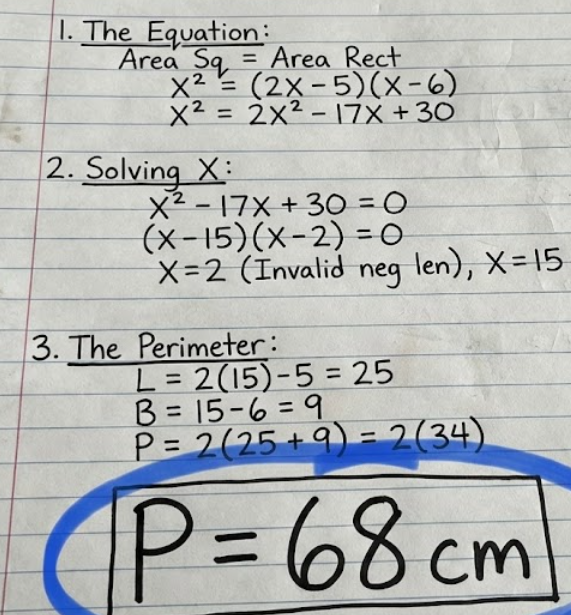 1. The Equation:
Area Sq = Area Rect
x² = (2x-5)(x-6)
x² = 2x² - 17x + 30
2. Solving X:
x² - 17x + 30 = 0
(x-15)(x-2) = 0
x=2 (Invalid neg len), x=15
3. The Perimeter:
L = 2(15)-5 = 25
B = 15-6 = 9
P = 2(25+9) = 2(34)
P = 68 cm